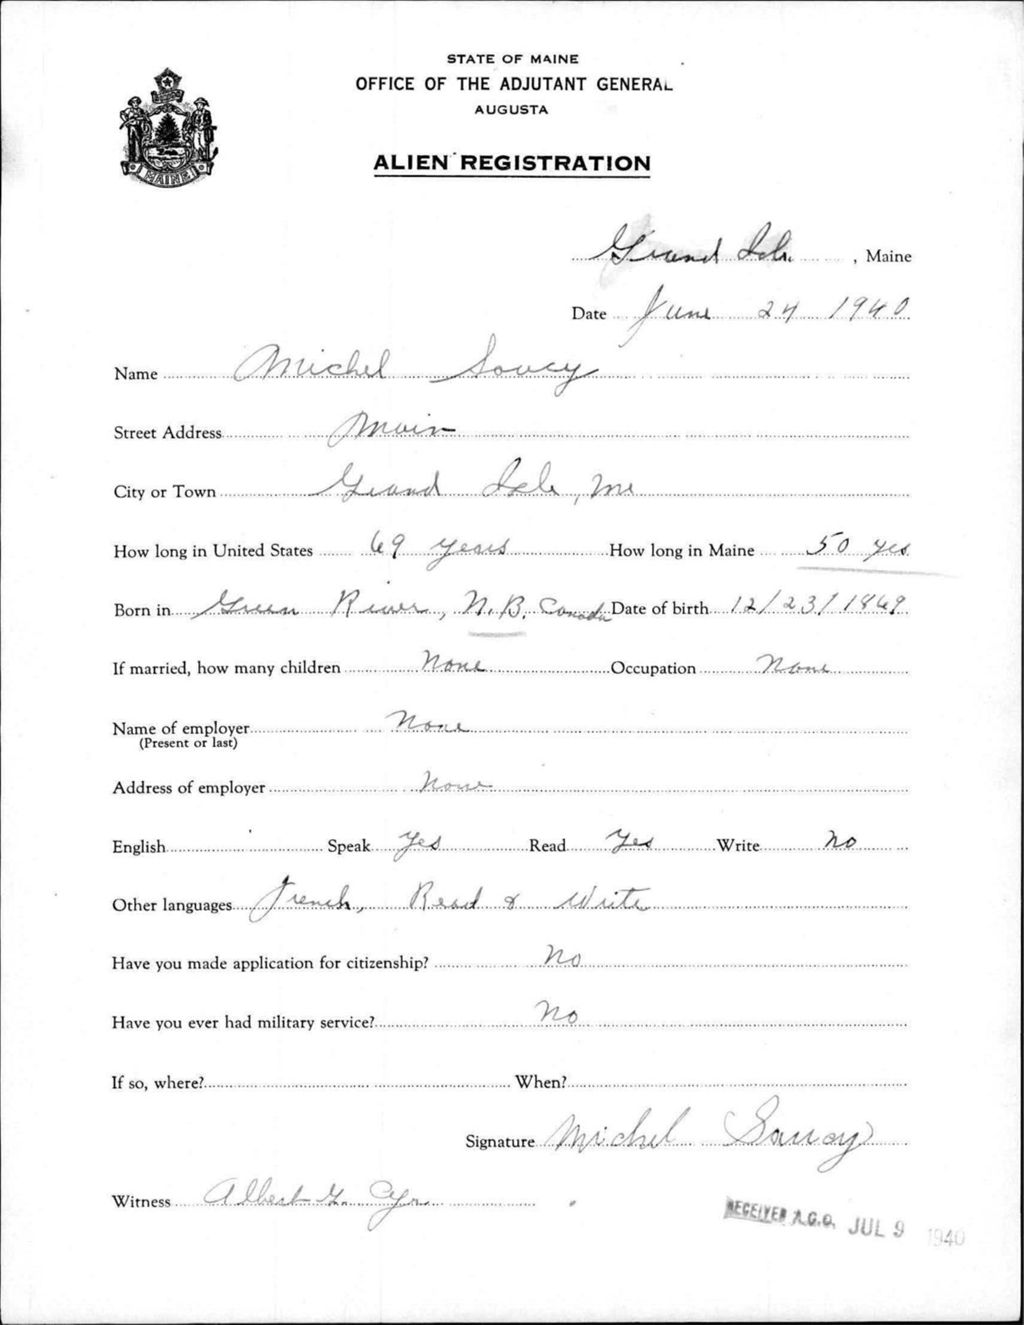 STATE OF MAINE
OFFICE OF THE ADJUTANT GENERAL
AUGUSTA
ALIEN REGISTRATION
MAINE
Grand Isle, Maine
Date June 24 1940
Name Michel Soucy
Street Address Main
City or Town Grand Isle, Me
How long in United States 69 years How long in Maine 50 yrs
Born in Green River, N.B. Canada Date of birth 12/23/1869
If married, how many children None Occupation None
Name of employer None
(Present or last)
Address of employer None
English Speak Yes Read Yes Write No
Other languages French, Read & Write
Have you made application for citizenship? No
Have you ever had military service? No
If so, where? When?
Signature Michel Soucy
Witness Albert G. Cyr
RECEIVED A.G.O. JUL 9 1940